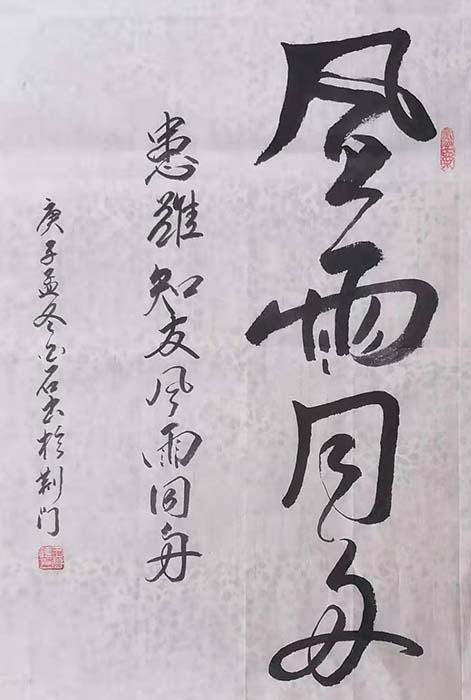 风雨同舟
患難知友风雨同舟
庚子孟冬白石书於荆门